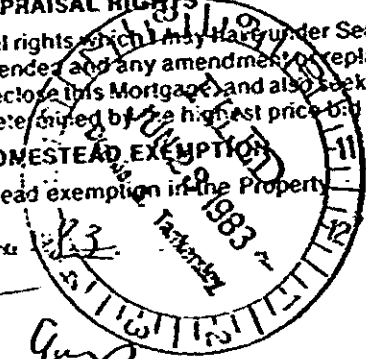 PRAISAL RIGHTS
l rights which I may have under Se
ended and any amendment or repla
eclose this Mortgage) and also seek
etermined by the highest price bid
OMESTEAD EXEMPTION
ead exemption in the Property
FILED
JUN 29 1983
Tankersley
11
12